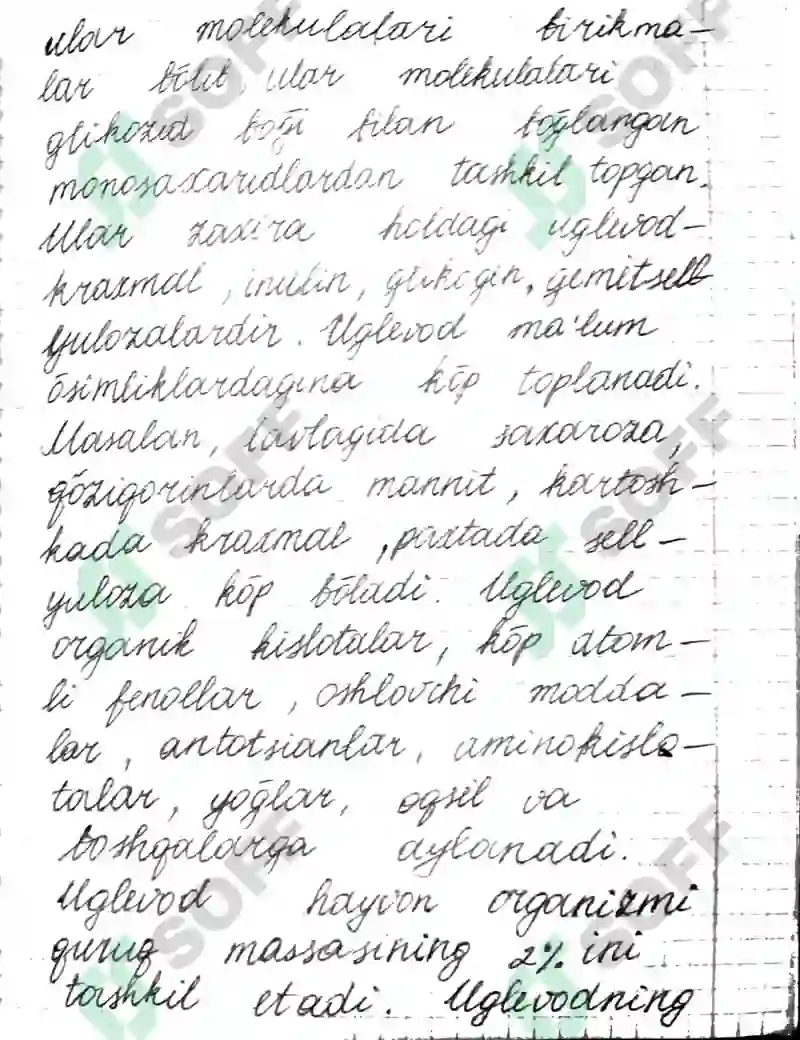 ular molekulalari birikma-
lar bōlib, ular molekulalari
glikozid boḡi bilan boḡlangan
monosaxaridlardan tashkil topgan.
Ular zaxira holdagi uglevod-
kraxmal, inulin, glikogin, gemitsell
yulozalardir. Uglevod ma'lum
ōsimliklardagina kōp toplanadi.
Masalan, lavlagida saxaroza,
qōziqorinlarda mannit, kartosh-
kada kraxmal, paxtada sell-
yuloza kōp bōladi. Uglevod
organik kislotalar, kōp atom-
li fenollar, oshlovchi modda-
lar, antotsianlar, aminokislo-
talar, yoḡlar, oqsil va
boshqalarga aylanadi.
Uglevod hayvon organizmi
quruq massasining 2% ini
tashkil etadi. Uglevodning
SOFF
SOFF
SOFF
SOFF
SOFF
SOFF